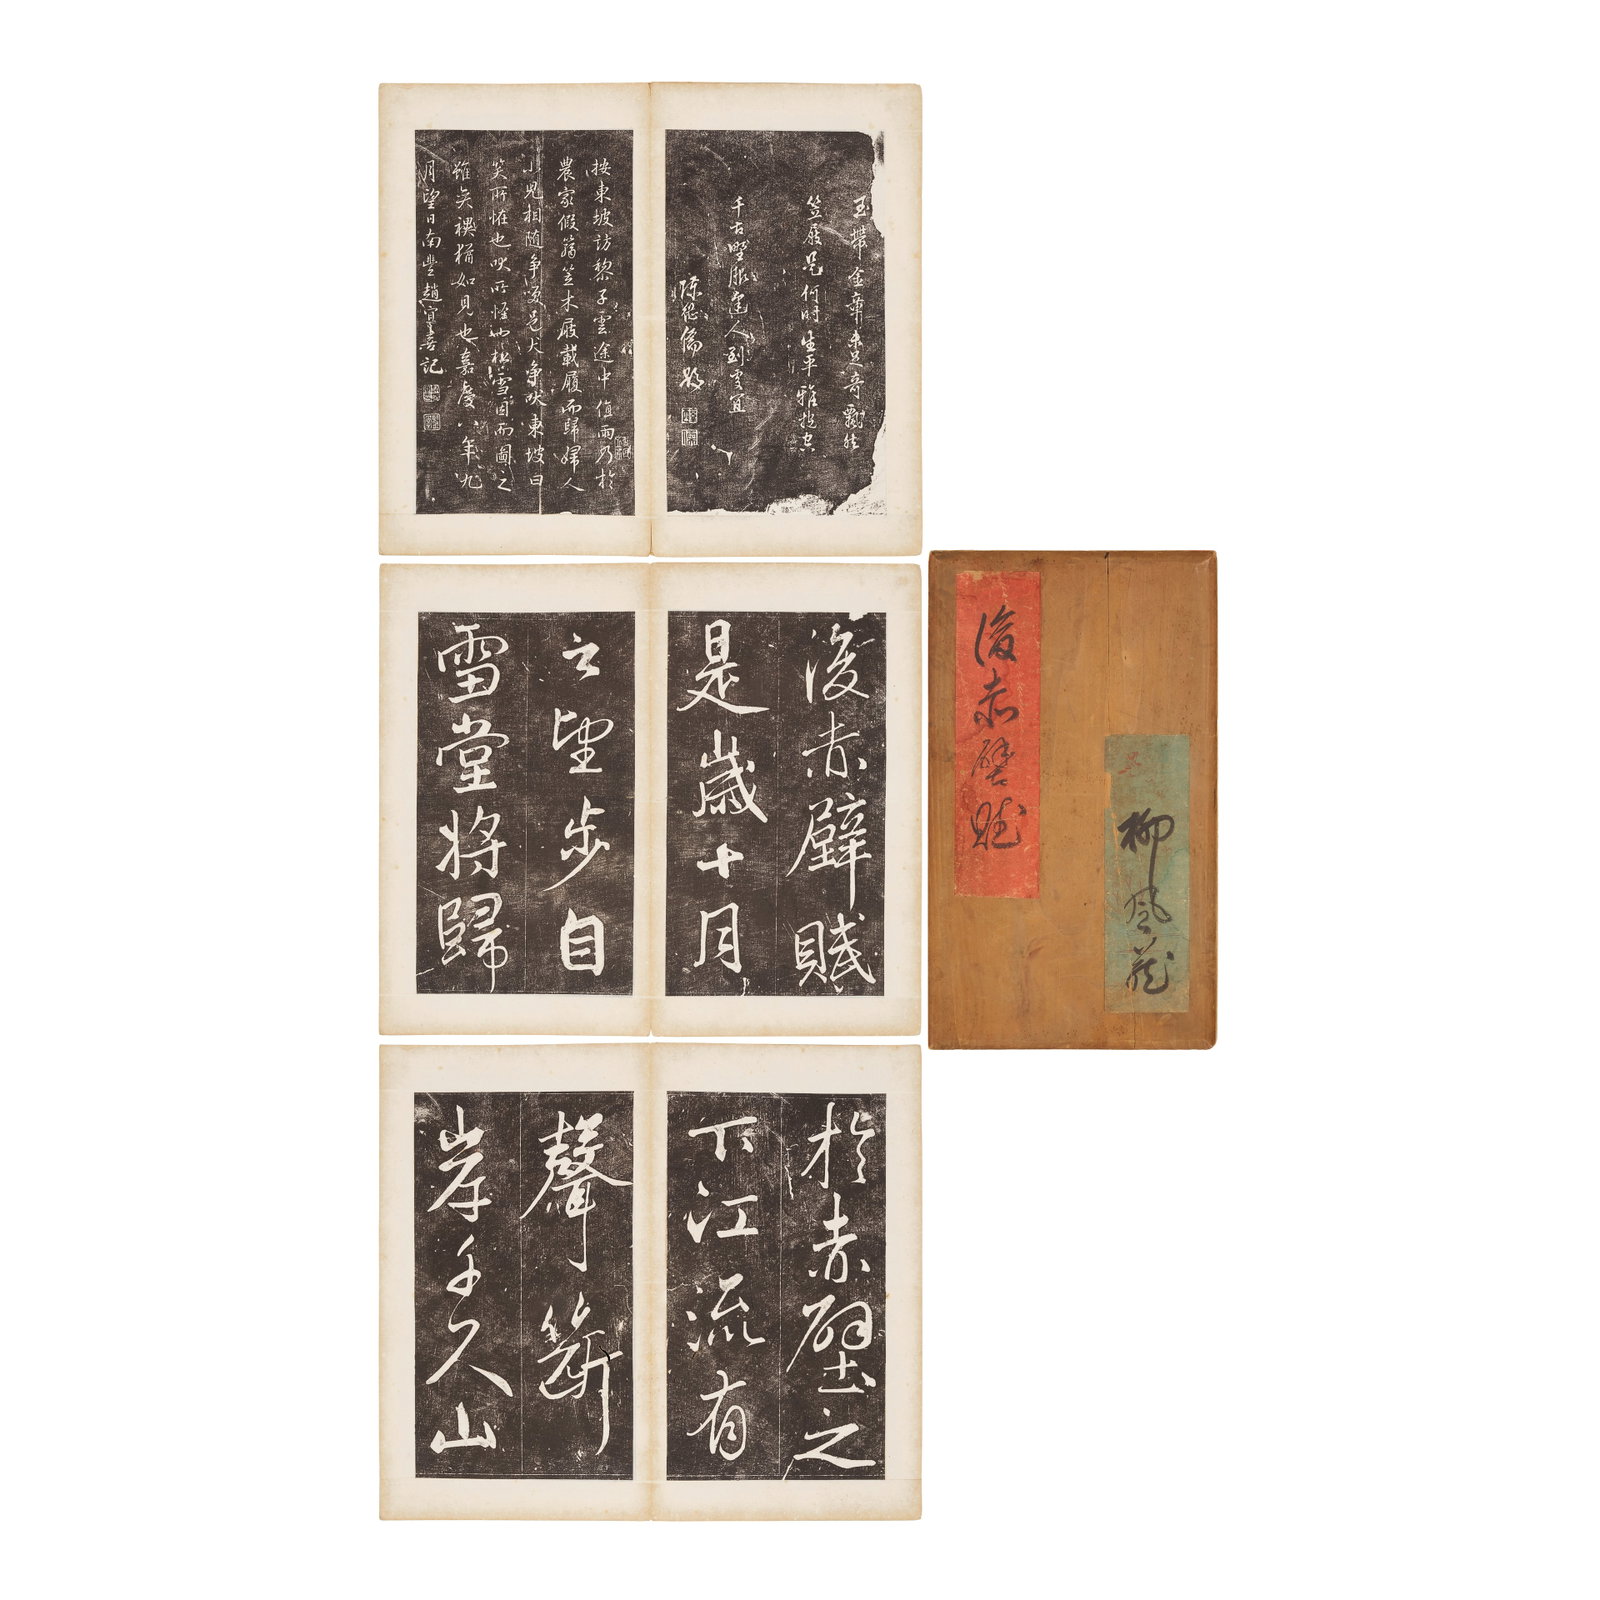 玉帶金帶未足奇飄然
笠屐是何時生平雅抱
千古野服達人到處宜
按東坡訪黎子雲途中值雨乃於
農家假篛笠木屐載履而歸婦人
小兒相隨爭笑邑犬爭吠東坡曰
笑所怪也吠所怪也松雪因而圖之
雖矣襖猶如見也嘉慶八年九
月望日南豐趙宜喜記
後赤壁賦
是歲十月
之望步自
雪堂將歸
於赤壁之
下江流有
聲斷
岸千尺山
後赤壁賦
柳風藏